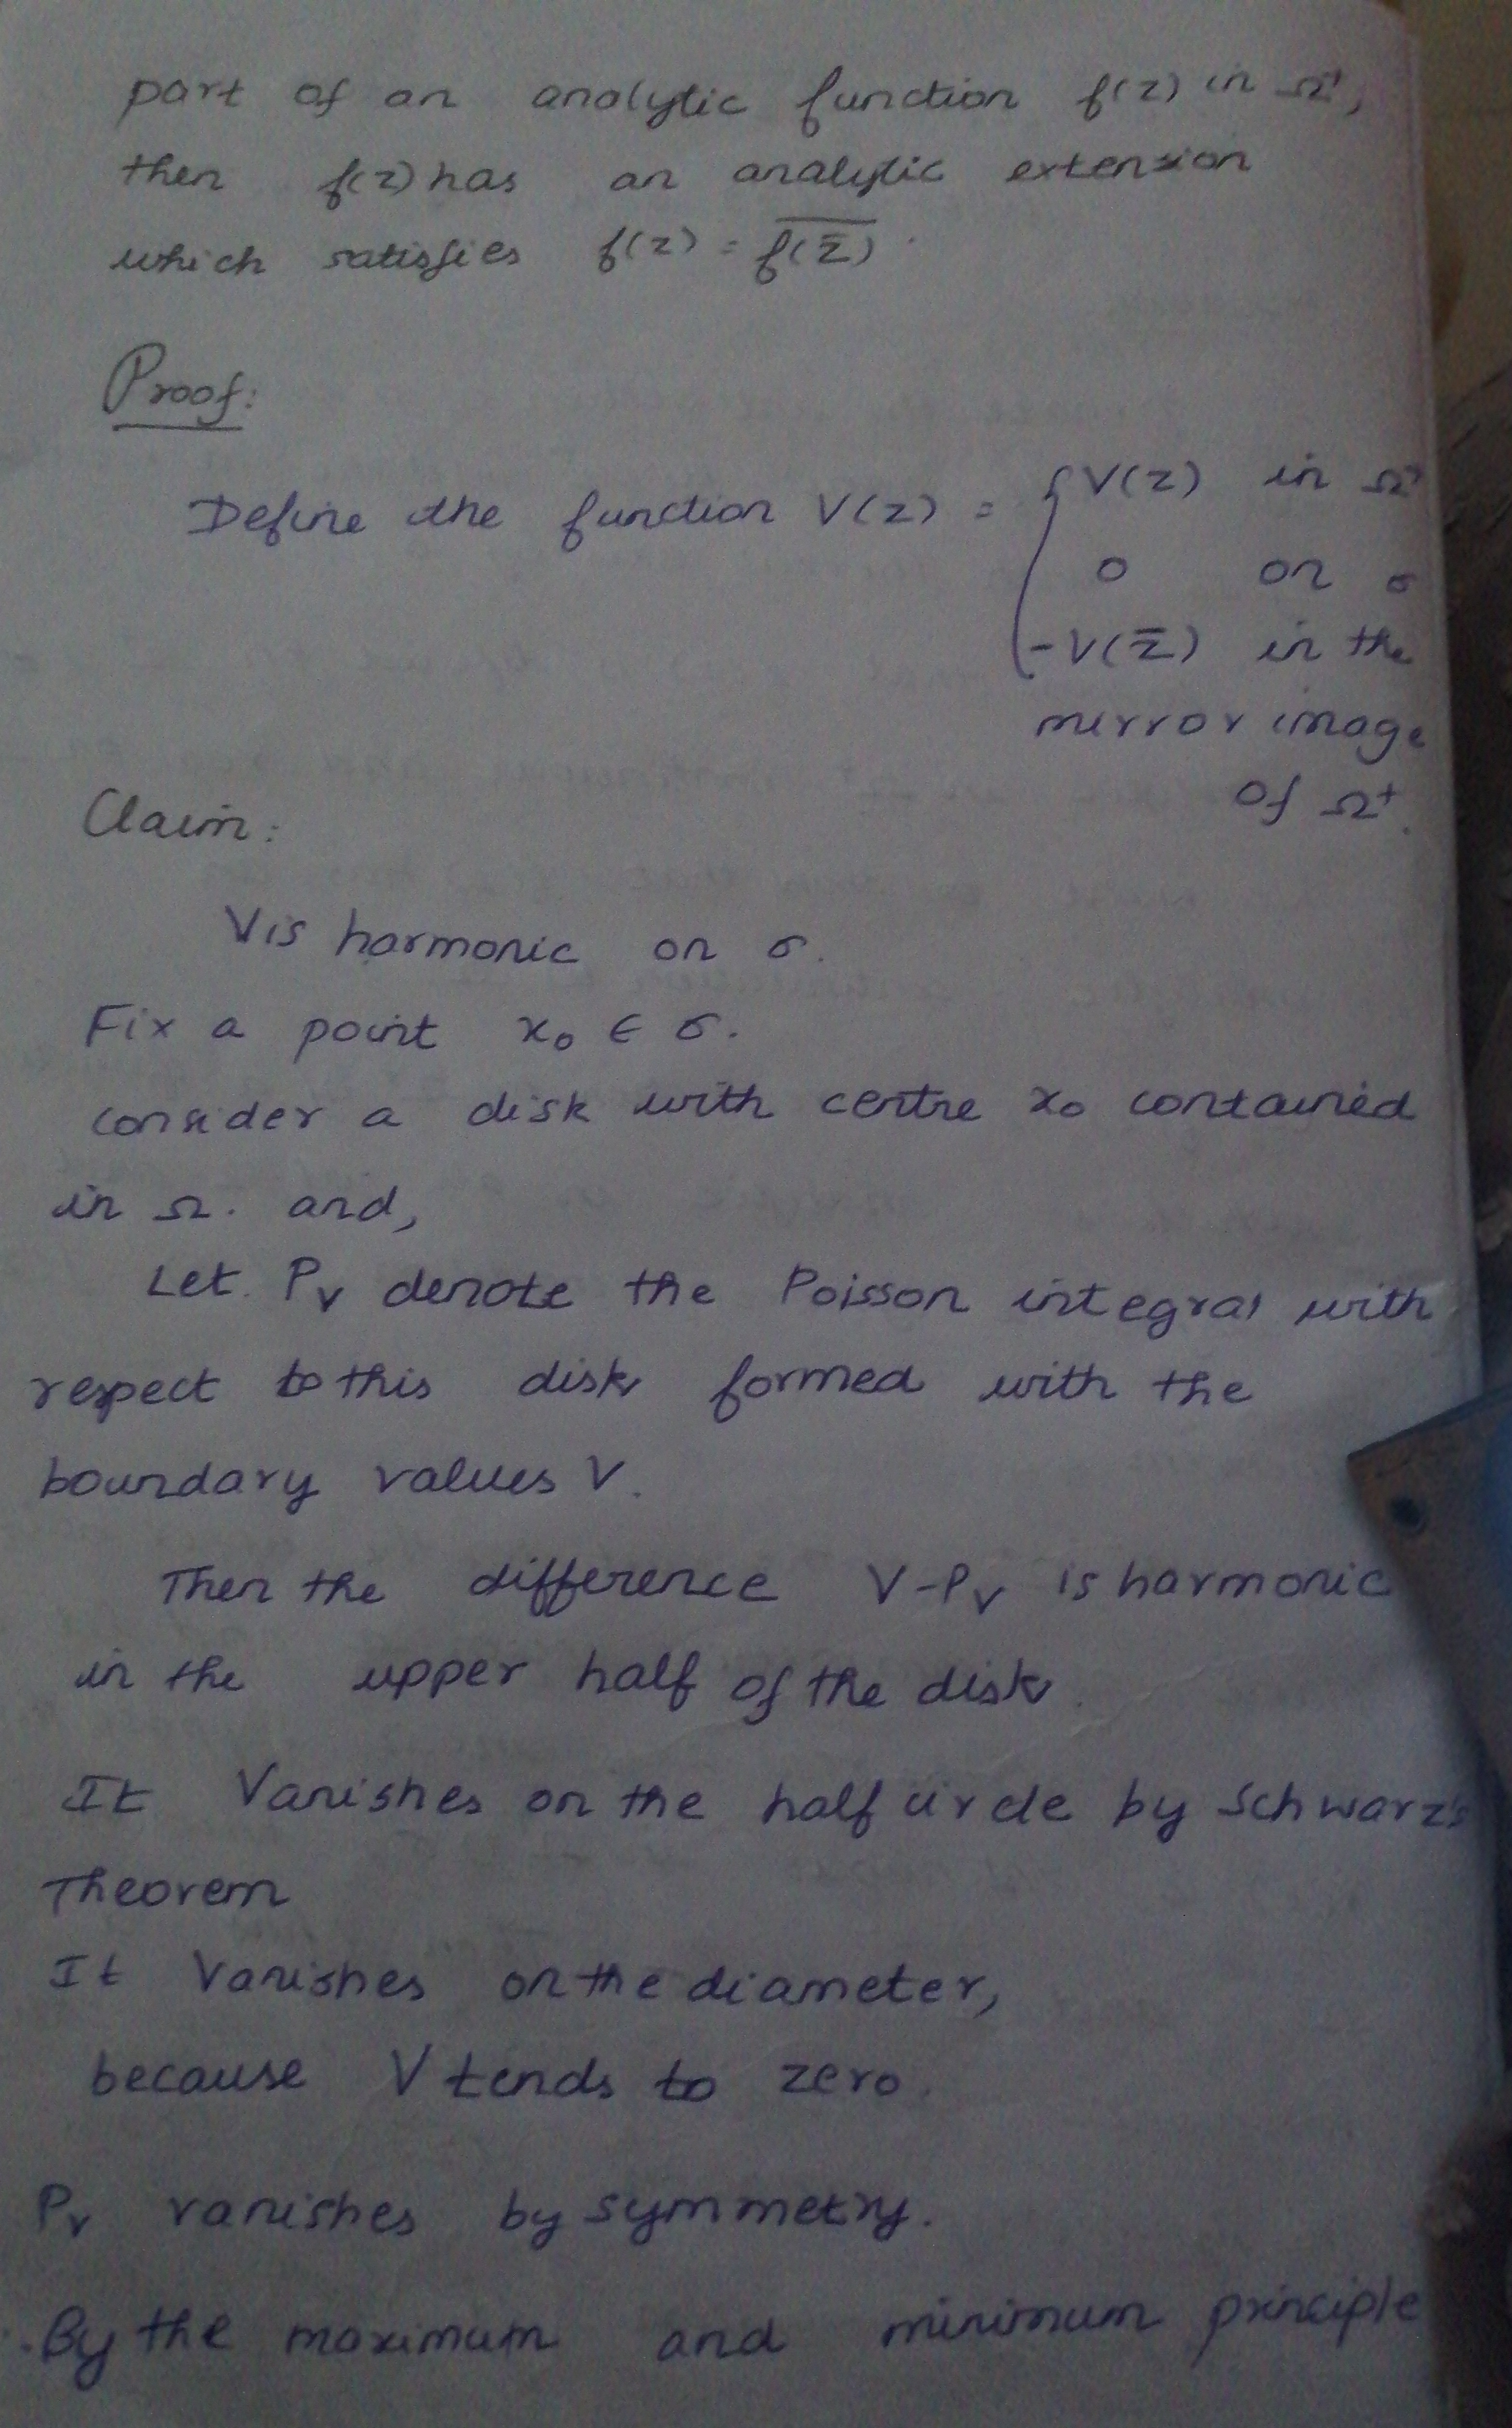 part of an analytic function f(z) in Ω⁺,
then f(z) has an analytic extension
which satisfies f(z) = \overline{f(z̄)}.
Proof:
Define the function V(z) = { V(z) in Ω⁺
0 on σ
-V(z̄) in the
mirror image
of Ω⁺.
Claim:
V is harmonic on σ.
Fix a point x₀ ∈ σ.
consider a disk with centre x₀ contained
in Ω. and,
Let P_V denote the Poisson integral with
respect to this disk formed with the
boundary values V.
Then the difference V-P_V is harmonic
in the upper half of the disk.
It Vanishes on the half circle by Schwarz's
Theorem
It Vanishes on the diameter,
because V tends to zero.
P_V vanishes by symmetry.
By the maximum and minimum principle